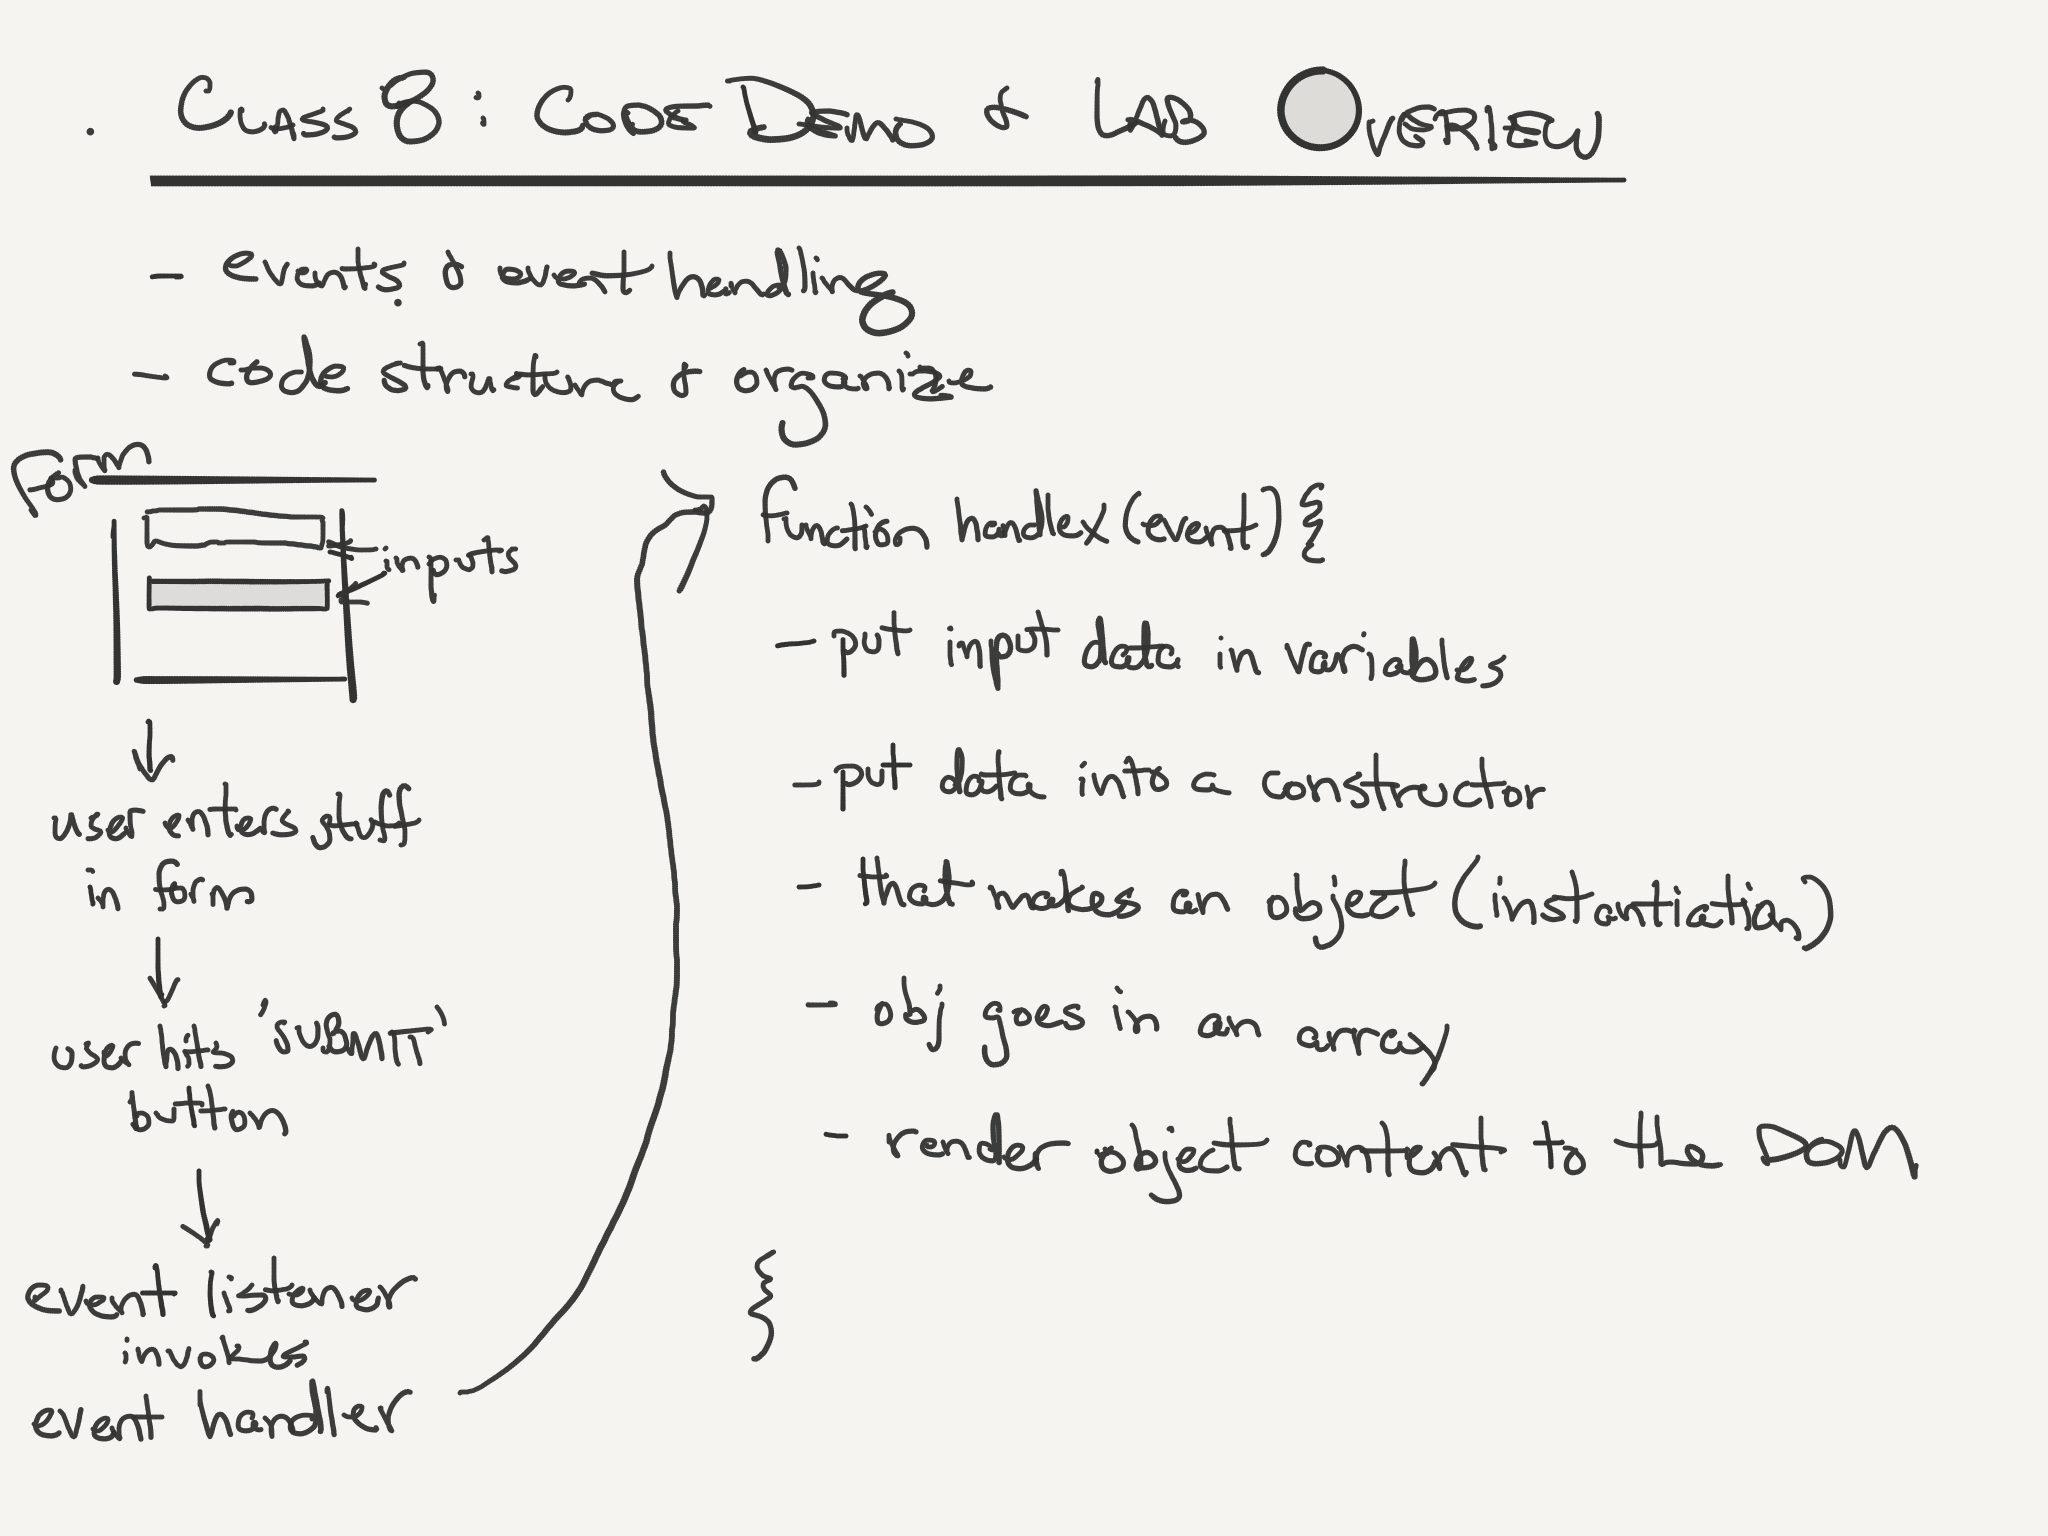 . CLASS 8: CODE DEMO & LAB OVERVIEW
- events & event handling
- code structure & organize
Form
inputs
user enters stuff
in form
user hits 'SUBMIT'
button
event listener
invokes
event handler
function handlex(event) {
- put input data in variables
- put data into a constructor
- that makes an object (instantiation)
- obj goes in an array
- render object content to the DOM
}